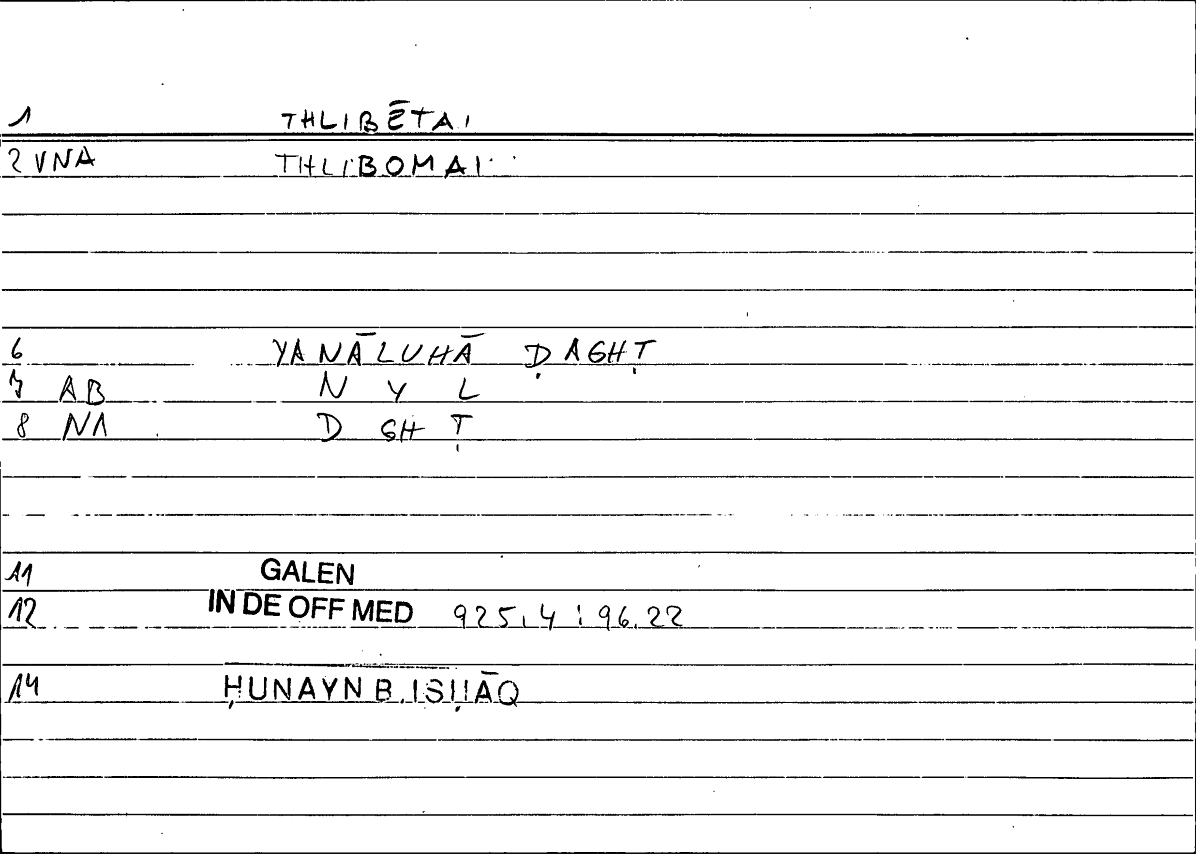 1 THLIBĒTAI
2 VNA THLIBOMAI
6 YANĀLUHĀ ḌAGHṬ
7 AB N Y L
8 NA D GH Ṭ
11 GALEN
12 IN DE OFF MED 925,4 : 96.22
14 ḤUNAYN B. ISḤĀQ